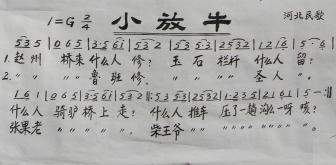 1=G 2/4 小放牛 河北民歌
5̇3̇5 | 0 6 5 | 3·5 6 1̇ | 5 3̇2̇ | 5̇3̇ 5̇3̇ | 2̇5̇3̇2̇ | 1̇2̇1̇6 | 5 — |
1. 赵州 桥来什么人 修? 玉石 栏杆 什么人 留?
2. 〃 〃 〃 〃 鲁班修. 〃 〃 〃 〃 圣人 〃.
1̇ 6 1̇ | 0 6 5 | 3·5 6 1̇ | 5 3̇2̇ 5̇3̇ 5̇3̇ 2̇5̇3̇2̇ | 1·2̇3̇5 2̇1̇6 | 5 — ‖
什么人 骑驴桥上走? 什么人 推车 压了一趟沟么一呀 咳?
张果老 〃 〃 〃 〃 〃, 柴王爷 〃 〃 〃 〃 〃 〃 〃 〃 〃 〃